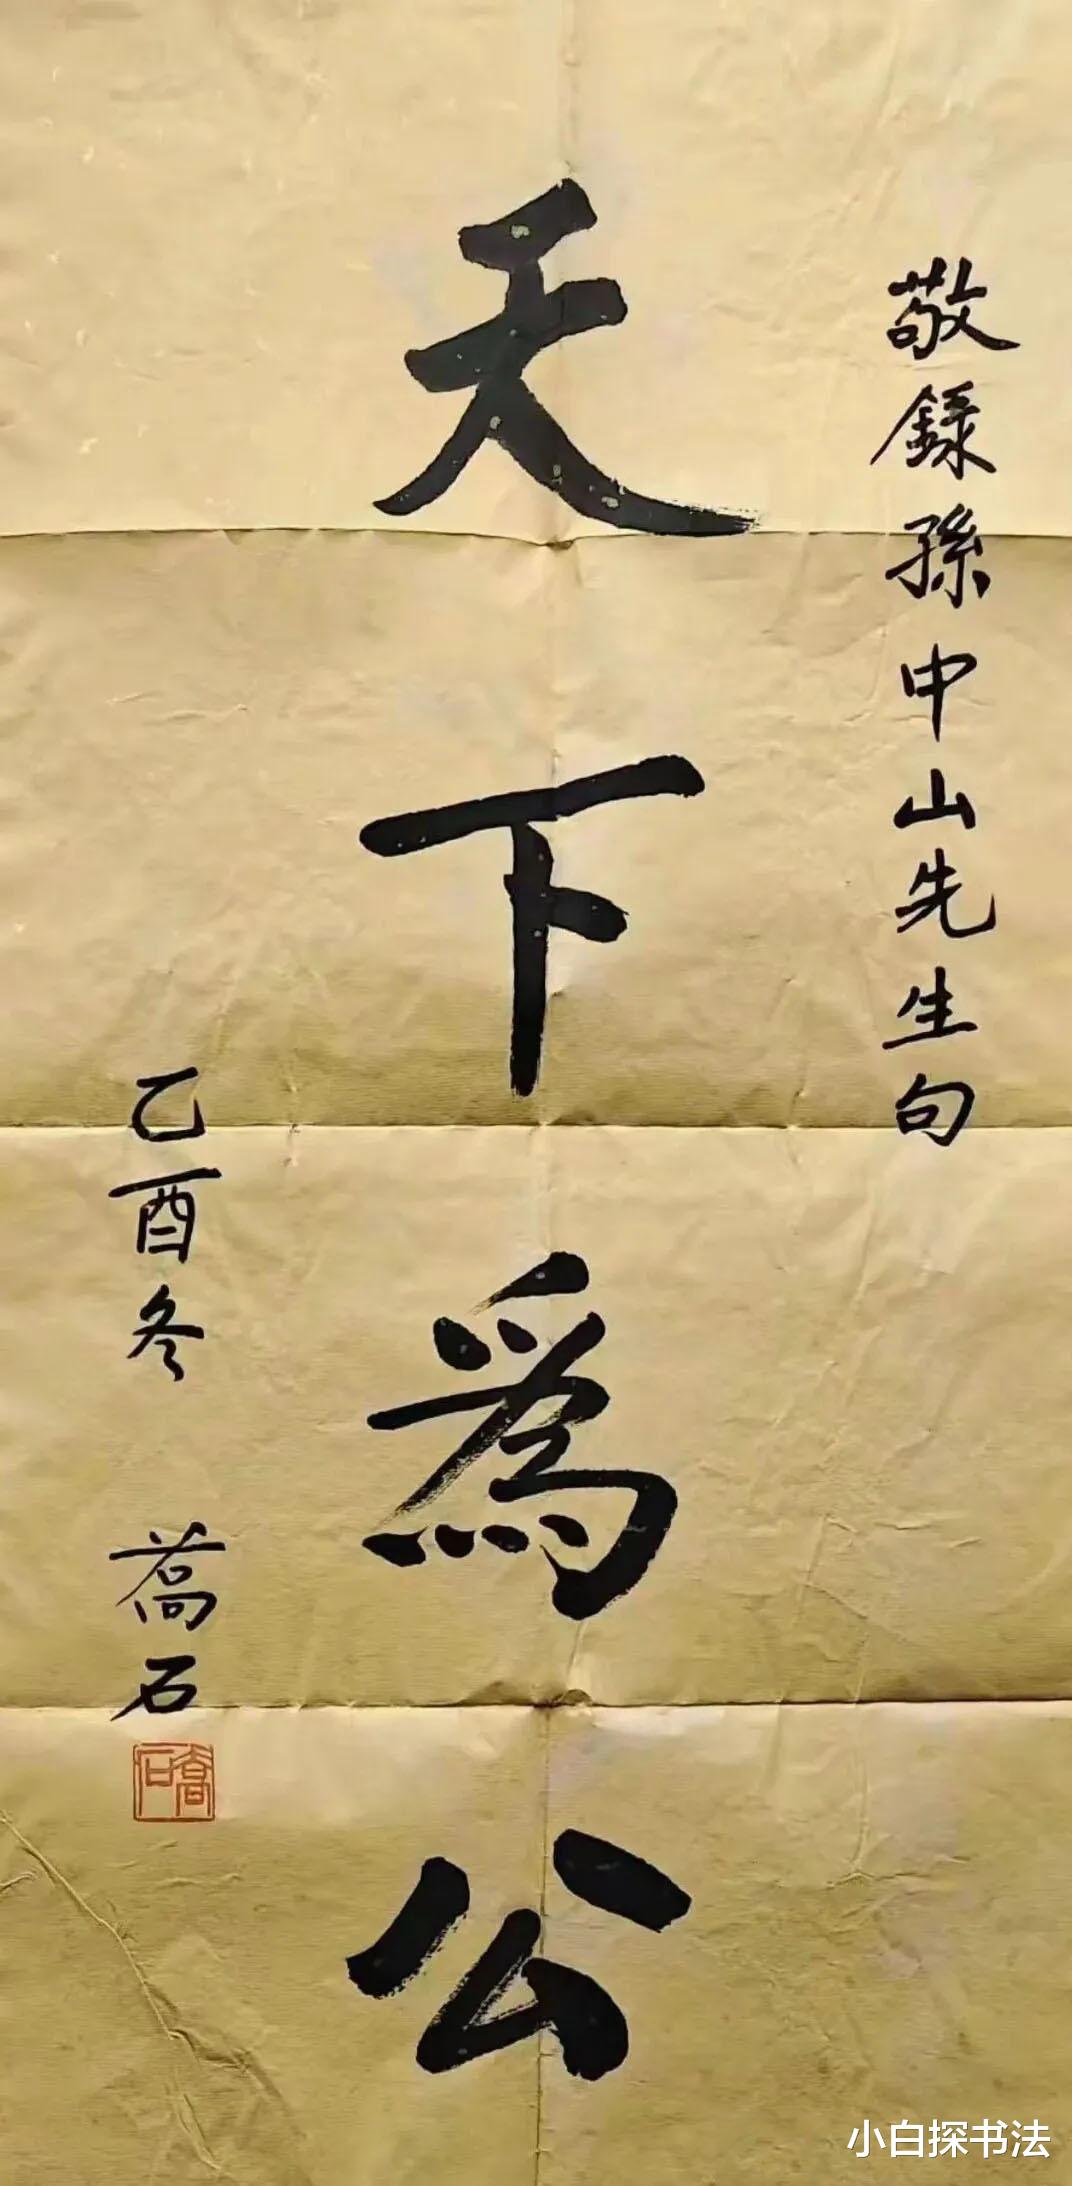 敬錄孫中山先生句
天下爲公
乙酉冬 喬石
喬石
小白探书法